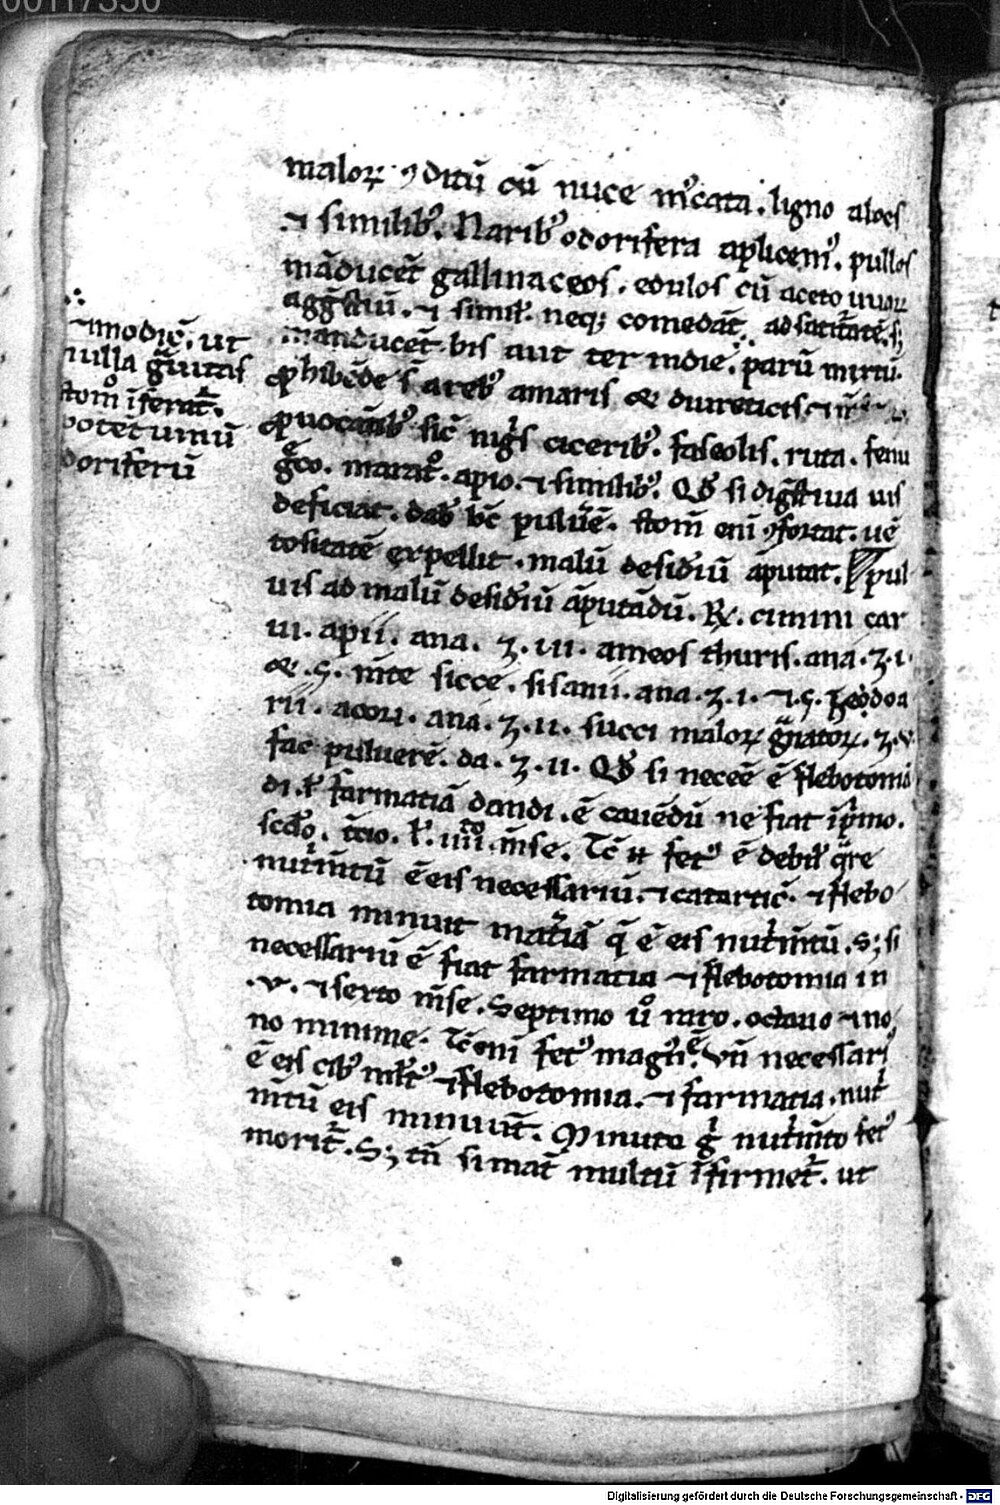 00117350
maloꝝ ꝯditū cū nuce mͻcata. ligno aloes
⁊ similibꝰ. Naribꝰ odorifera aplicemꝰ. pullos
māducēt gallinaceos. edulos cū aceto
neqꝫ comedāt. ad
manducēt bis aut ter in die. parū
amaris & diureticis
sic̄ nigͥs ciceribꝰ. faseolis. ruta. fenu
gͤco. maratͦ. apio. ⁊ similibꝰ. Qđ si digͤstiua uis
deficiat. dabꝰ hͨ puluēē. stom̄ eni ꝯfortat. uē
tositatē expellit. malū desidͥiū āputat. pul
uis ad malū desidͥiū āputādū. ℞. cimini car
ui. apii. ana. ʒ. iii. ameos thuris. ana. ʒ. i.
&. s. mīte sicce. sisanii. ana. ʒ. i. ⁊. s. zedoa
rii. acori. ana. ʒ. ii. succi maloꝝ gͣnatoꝝ. ʒ. v.
fac puluerē. da. ʒ. ii. Qđ si necēē ē flebotomā
di. ł farmatiā dandi. ē cauēdū ne fiat īpͥmo.
scđo. t̄cio. ł. iiiiͭͦ. m̄se. Tc̄ n fetꝰ ē debił qͣre
nutͥm̄tū ē eis necessariū. ⁊ catartic̄. ⁊ flebo
tomia minuit matͥiā q̄ ē eis nutͥm̄tū. Sꝫ si
necessariū ē fiat farmatia ⁊ flebotomia in
.v. ⁊ sexto m̄se. Septimo uͦ raro. octauo ⁊ no
no minime. Tc̄ eni fetꝰ magnꝰ ē. vn̄ necessariꝰ
ē eis cibꝰ młtꝰ ⁊ flebotomia. ⁊ farmatia. nutͥ
m̄tū eis minuūt. Minuto gͥ nutͥm̄to fetꝰ
moritͬ. Sꝫ tn̄ si mat̄ multū īfirmetͬ. ut
⁊ modic̄. ut
nulla gͣuitas
stomͦ īferatͬ.
potet uinū
odoriferū
Digitalisierung gefördert durch die Deutsche Forschungsgemeinschaft - DFG